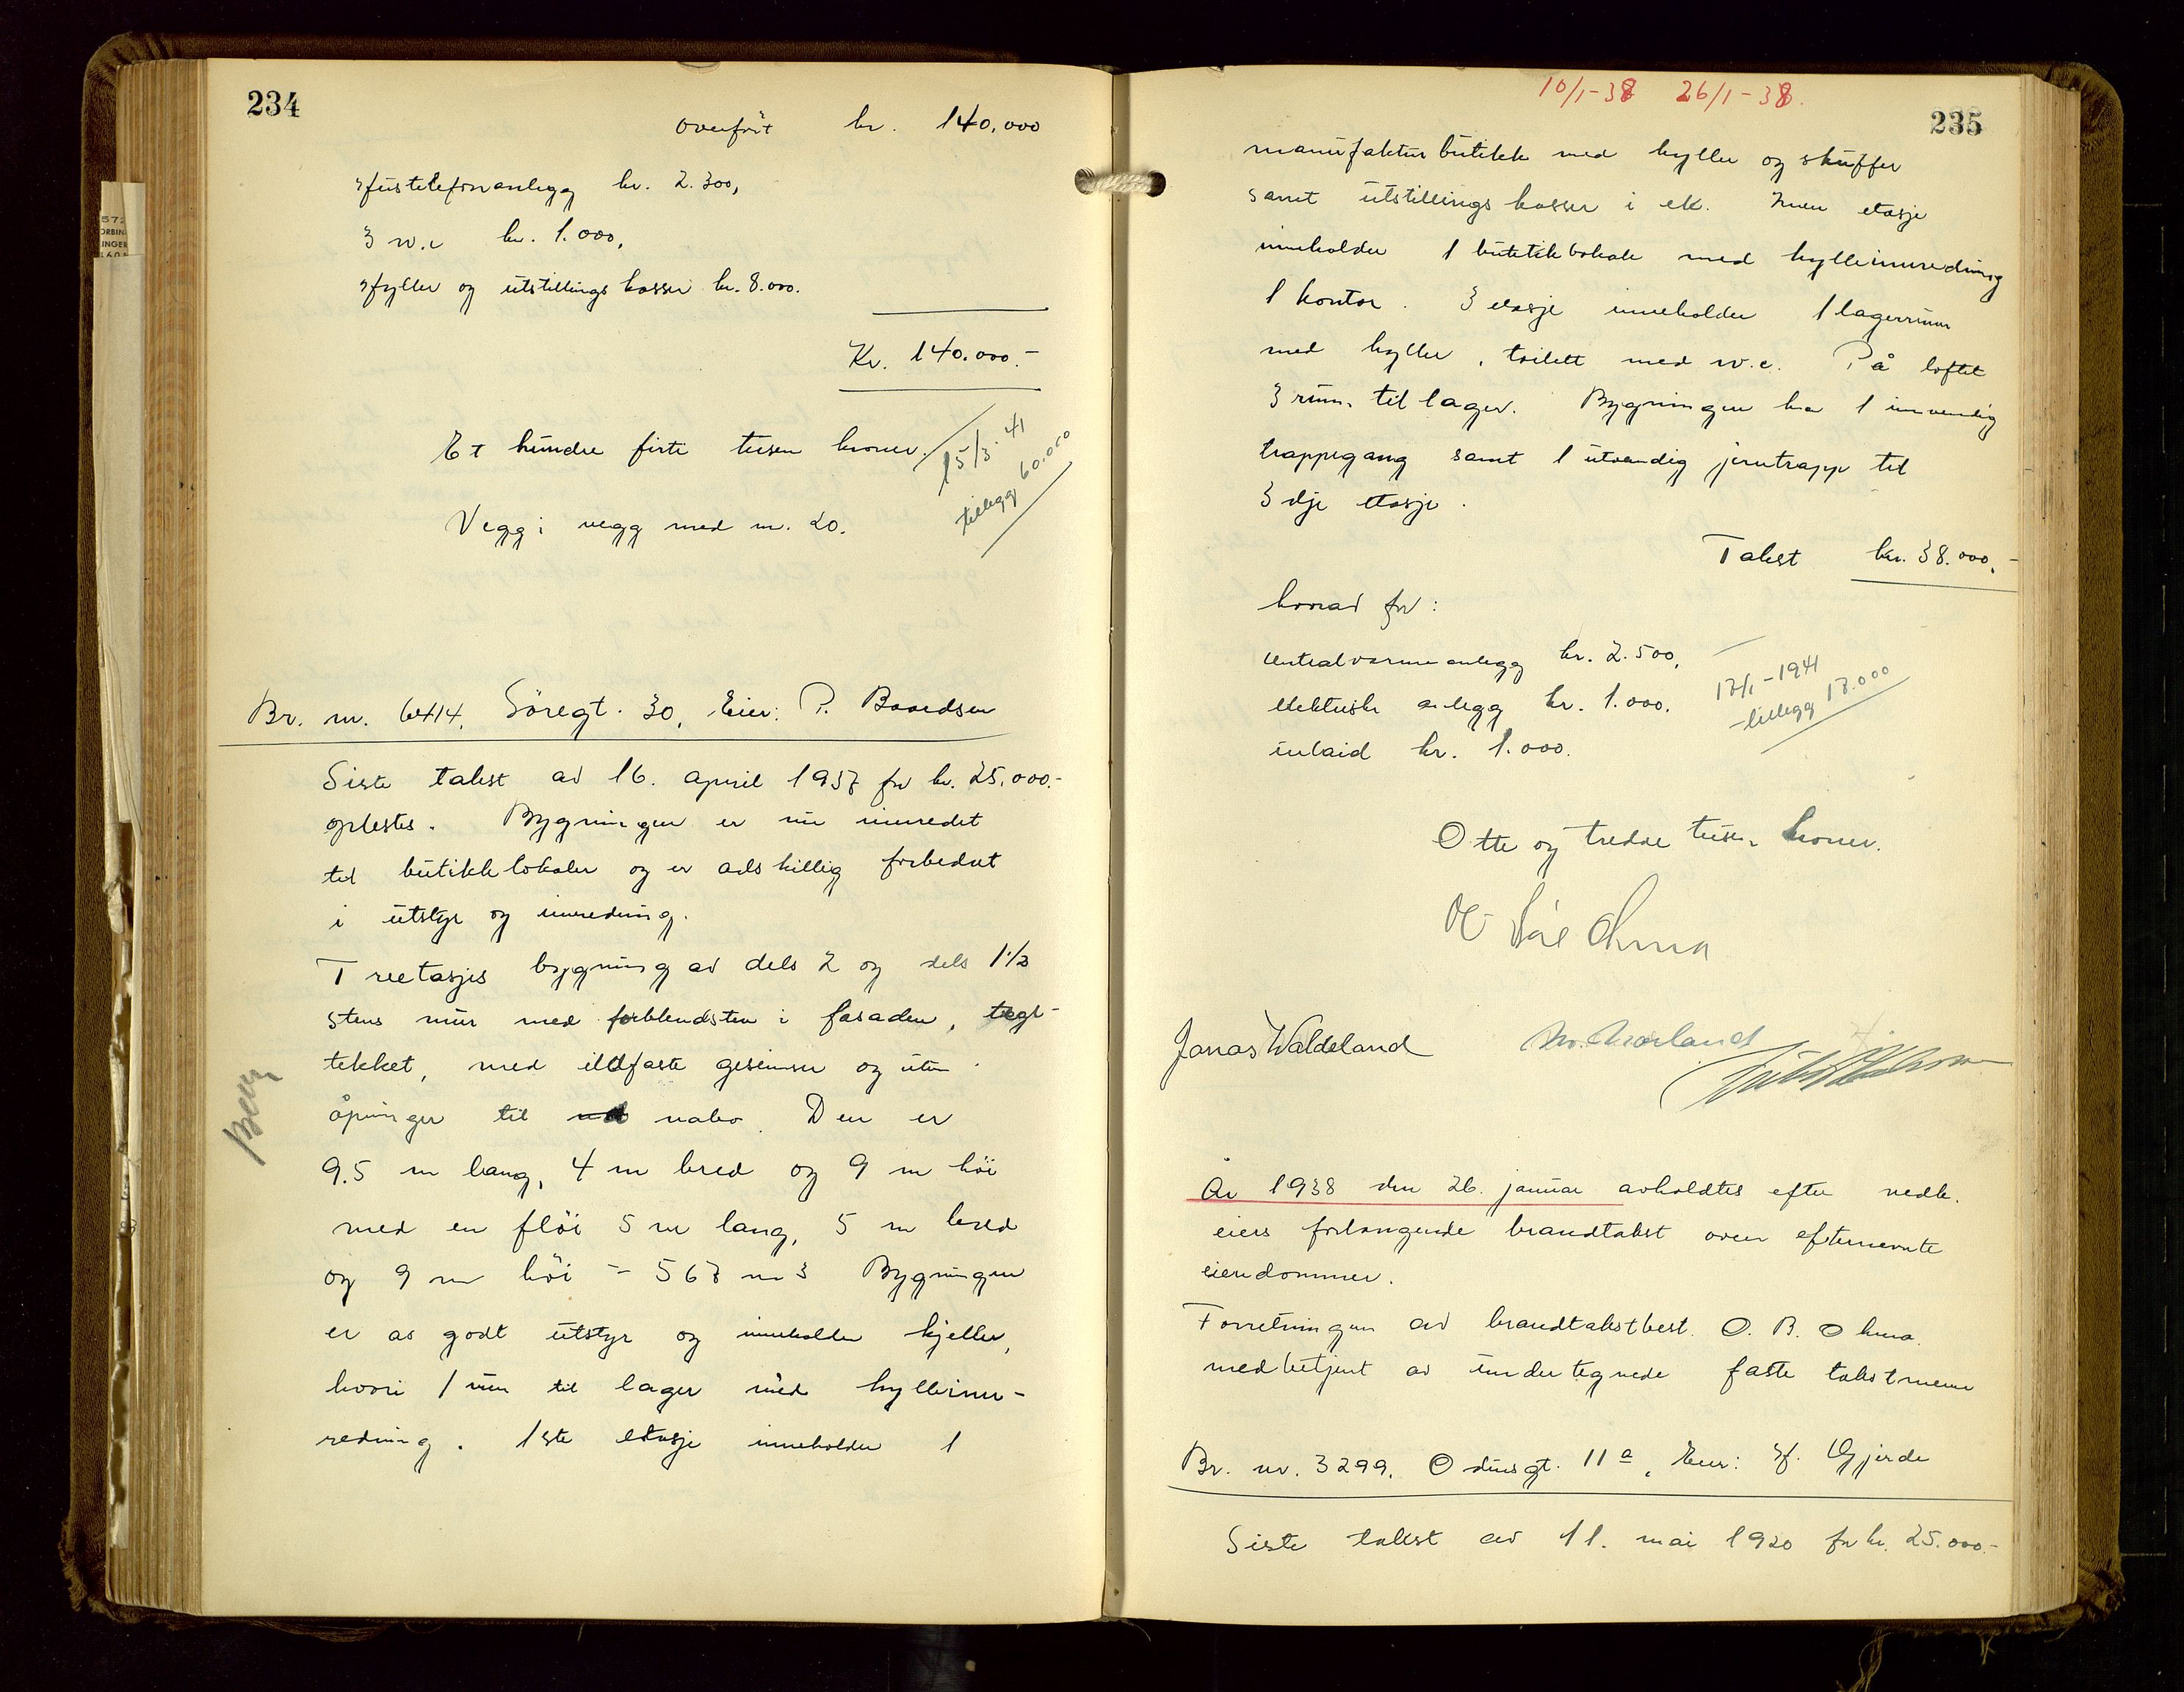 234
overført kr. 140.000
Hustelefonanlegg kr. 2.300,
3 w.c kr. 1.000,
Hyller og utstillings kasser kr. 8.000.
Kr. 140.000.-
Et hundre førti tusen kroner.
15/3. 41
tillegg 60.000
Vegg i vegg med nr. 20.
Br. nr. 6414, Søregt. 30, Eier: P. Baardsen
Siste takst av 16. april 1937 for kr. 25.000.-
oplestes. Bygningen er nu innredet
til butikklokaler og er adskillig forbedret
i utstyr og innredning.
Treetasjes bygning av dels 2 og dels 1½
stens mur med forblendsten i fasaden, tegl-
tekket, med ildfaste gesimser og uten
åpninger til nabo. Den er
9.5 m lang, 4 m bred og 9 m høi
med en fløi 5 m lang, 5 m bred
og 9 m høi = 567 m3 Bygningen
er av godt utstyr og inneholder kjeller,
hvori 1 rum til lager med hylleinn-
redning. 1ste etasje inneholder 1
10/1-38 26/1-38.
235
manufaktur butikk med hyller og skuffer
samt utstillings kasser i ek. 2nen etasje
inneholder 1 butikklokale med hylleinnredning
1 kontor. 3 etasje inneholder 1 lagerrum
med hyller, toilett med w.c. På loftet
3 rum til lager. Bygningen har 1 innvendig
trappegang samt 1 utvendig jerntrapp til
3dje etasje.
Takst kr. 38.000,-
hvorav for:
centralvarmeanlegg kr. 2.500,
elektrisk anlegg kr. 1.000.
inlaid kr. 1.000.
17/1-1941
tillegg 17.000
Otte og tredve tusen kroner.
Jonas Waldeland
År 1938 den 26. januar avholdtes efter vedk.
eiers forlangende brandtakst over efternevnte
eiendommer.
Forretningen av brandtakstbest. O. B. Ohna
medbetjent av undertegnede faste takstmenn
Br. nr. 3299, Odinsgt. 11a, Eier: H. Gjerde
Siste takst av 11. mai 1920 for kr. 25.000.-